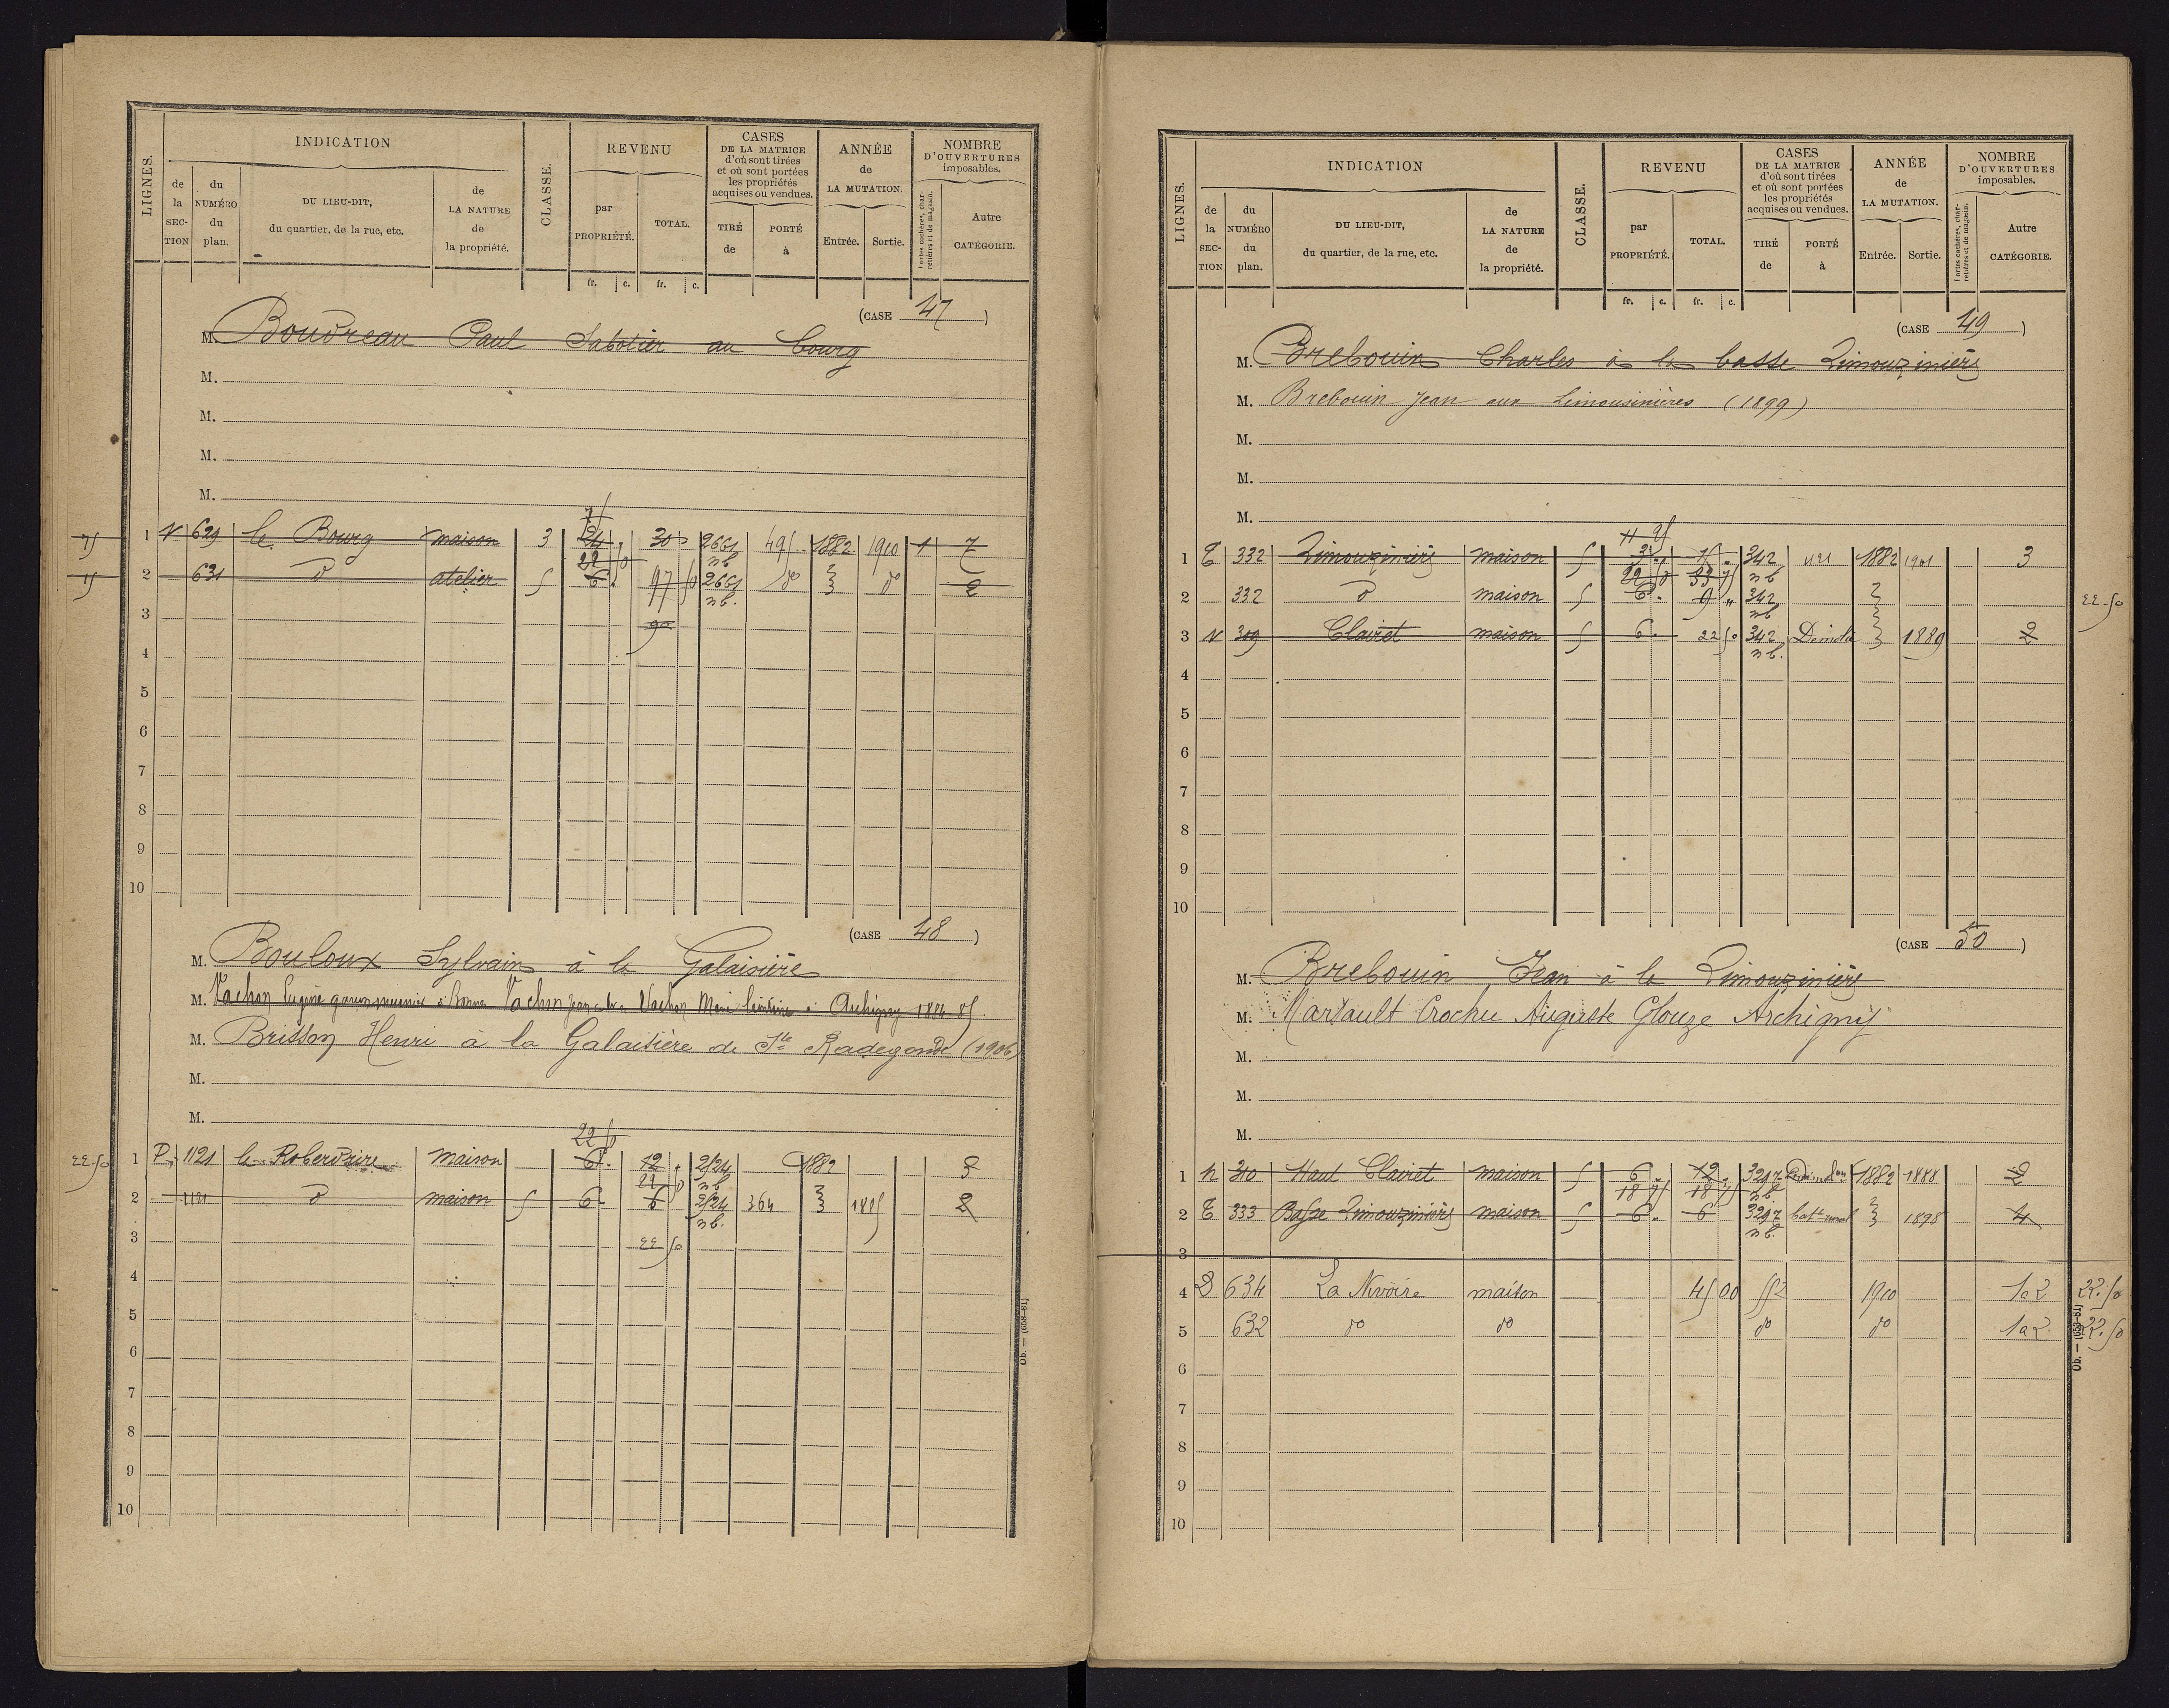 LIGNES.
INDICATION
de la SECTION
du NUMÉRO du plan.
DU LIEU-DIT, du quartier, de la rue, etc.
de LA NATURE de la propriété.
CLASSE.
REVENU
par PROPRIÉTÉ.
TOTAL.
CASES DE LA MATRICE d'où sont tirées et où sont portées les propriétés acquises ou vendues.
TIRÉ de
PORTÉ à
ANNÉE de LA MUTATION.
Entrée. Sortie.
NOMBRE D'OUVERTURES imposables.
Portes cochères, charretières et de magasin.
Autre CATÉGORIE.
fr. c. fr. c.
(CASE 47)
M. Boudreau Paul Sabotier au bourg
M.
M.
M.
M.
1 N 629 le Bourg maison 3 30 2661 495 1882 1910 1 7
2 631 d° atelier 5 6 97 50 2661 d° d° 2
nb
nb.
3 90
4
5
6
7
8
9
10
(CASE 48)
M. Bouloux Sylvain à la Galaisière
M. Vachon Eugène Vachon Vachon Marie à Archigny
M. Brisson Henri à la Galaisière de Ste Radegonde (1906)
M.
M.
22 50
22.50 1 P. 1121 la maison 6. 12 2124 1882
2 1121 d° maison 5 6. 6 2124 364 1885 2
nb.
3 22 50
4
5
6
7
8
9
10
Ob. — (658-81)
LIGNES.
INDICATION
de la SECTION
du NUMÉRO du plan.
DU LIEU-DIT, du quartier, de la rue, etc.
de LA NATURE de la propriété.
CLASSE.
REVENU
par PROPRIÉTÉ.
TOTAL.
CASES DE LA MATRICE d'où sont tirées et où sont portées les propriétés acquises ou vendues.
TIRÉ de
PORTÉ à
ANNÉE de LA MUTATION.
Entrée. Sortie.
NOMBRE D'OUVERTURES imposables.
Portes cochères, charretières et de magasin.
Autre CATÉGORIE.
fr. c. fr. c.
(CASE 49)
M. Brebouin Charles à la basse Limouzinière
M. Brebouin Jean aux Limousinières (1899)
M.
M.
M.
1 E 332 Limouzinière maison 5 15 342 421 1882 1901 3
2 332 d° maison 5 6. 9 342 22.50
3 N 309 Clairet maison 5 6. 22 50 342 Démolie 1889 2
nb.
4
5
6
7
8
9
10
(CASE 50)
M. Brebouin Jean à la Limouzinière
M. Marsault Crochu Auguste Glouze Archigny
M.
M.
M.
1 N 310 Haut Clairet maison 5 6 12 3297 1882 1888 2
18 75 18 75 nb.
2 E 333 Basse Limouzinière maison 5 6. 6 3297 batt rural 1898 4
nb.
3
4 D 634 maison 45 00 552 1910 1a2 22.50
5 632 d° d° d° d° 1a2 22.50
6
7
8
9
10
Ob. — (658-81)